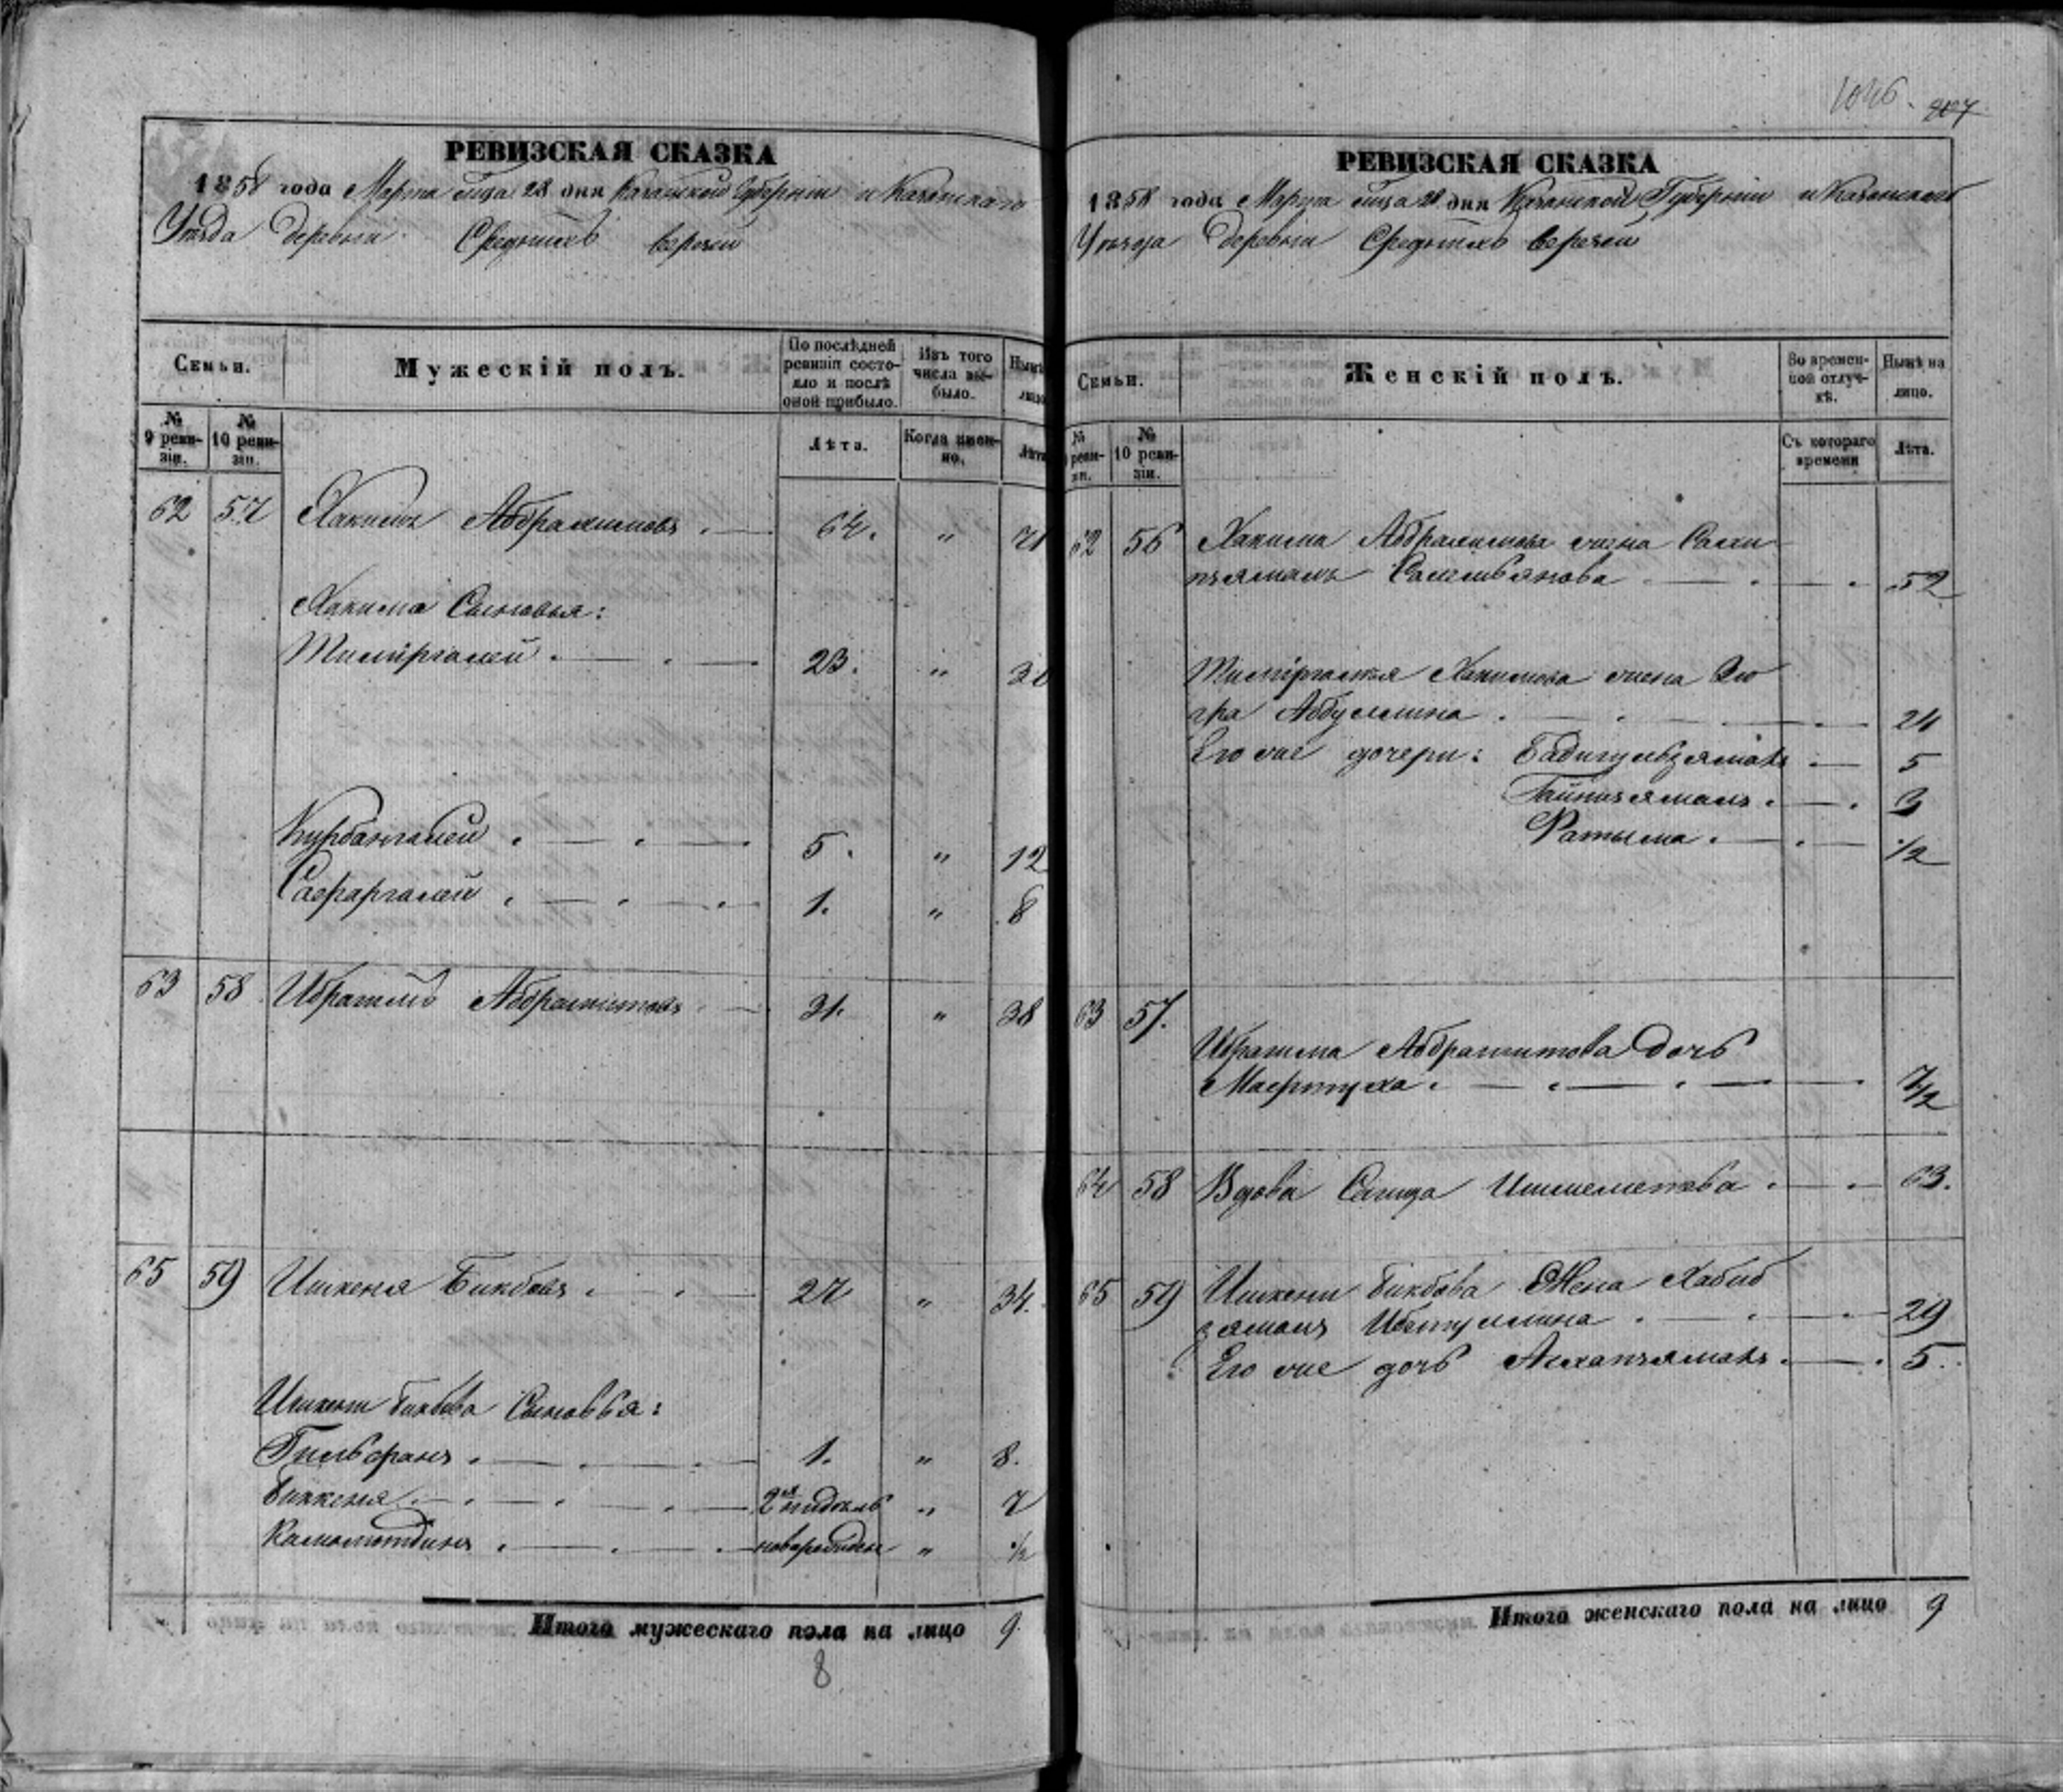 РЕВИЗСКАЯ СКАЗКА
1858 года Марта м҃ца 28 дня Казанской Губернии и Казанскаго
Уезда деревни Среднихъ верези
Семьи.
Мужескій полъ.
По послѣдней ревизіи состояло и послѣ оной прибыло.
Изъ того числа выбыло.
Нынѣ лицо
№ 9 ревизіи.
№ 10 ревизіи.
Лѣта.
Когда именно.
Лѣта
62 57 Хакимъ Абдрахимовъ 64. " 71
Хакима Сыновья:
Тимиргалей 23. " 30
Курбангалей 5. " 12
Сафаргалей 1. " 8
63 58 Ибрагимъ Абдрашитовъ 31. " 38
65 59 Ишкеня Бикбовъ 27 " 34.
Ишкени Бикбова Сыновья:
Гильфанъ 1. " 8.
Биккеня " 7
Камалютдинъ новорожден " ½
Итого мужескаго пола на лицо 9
8
1046. 407
РЕВИЗСКАЯ СКАЗКА
1858 года Марта м҃ца 28 дня Казанской Губернии и Казанскаго
Уезда деревни Среднихъ верези
Семьи.
Женскій полъ.
Во временной отлучкѣ.
Нынѣ на лицо.
№ ревизіи.
№ 10 ревизіи.
Съ котораго времени
Лѣта.
62 56 Хакима Абдрахимова жена
52
Тимиргалея Хакимова жена Зю
гра Абдуллина 24
Его же дочери: Бадигульзямалъ 5
Гайнизямалъ 3
Фатыма ½
63 57. Ибрагима Абдрашитова дочь
Мафтуха ½
64 58 Вдова Сагида Ишмеметова 63.
65 59 Ишкени Бикбова Жена Хабиб
зямалъ Ибетуллина 29
Его же дочь 5.
Итого женскаго пола на лицо 9